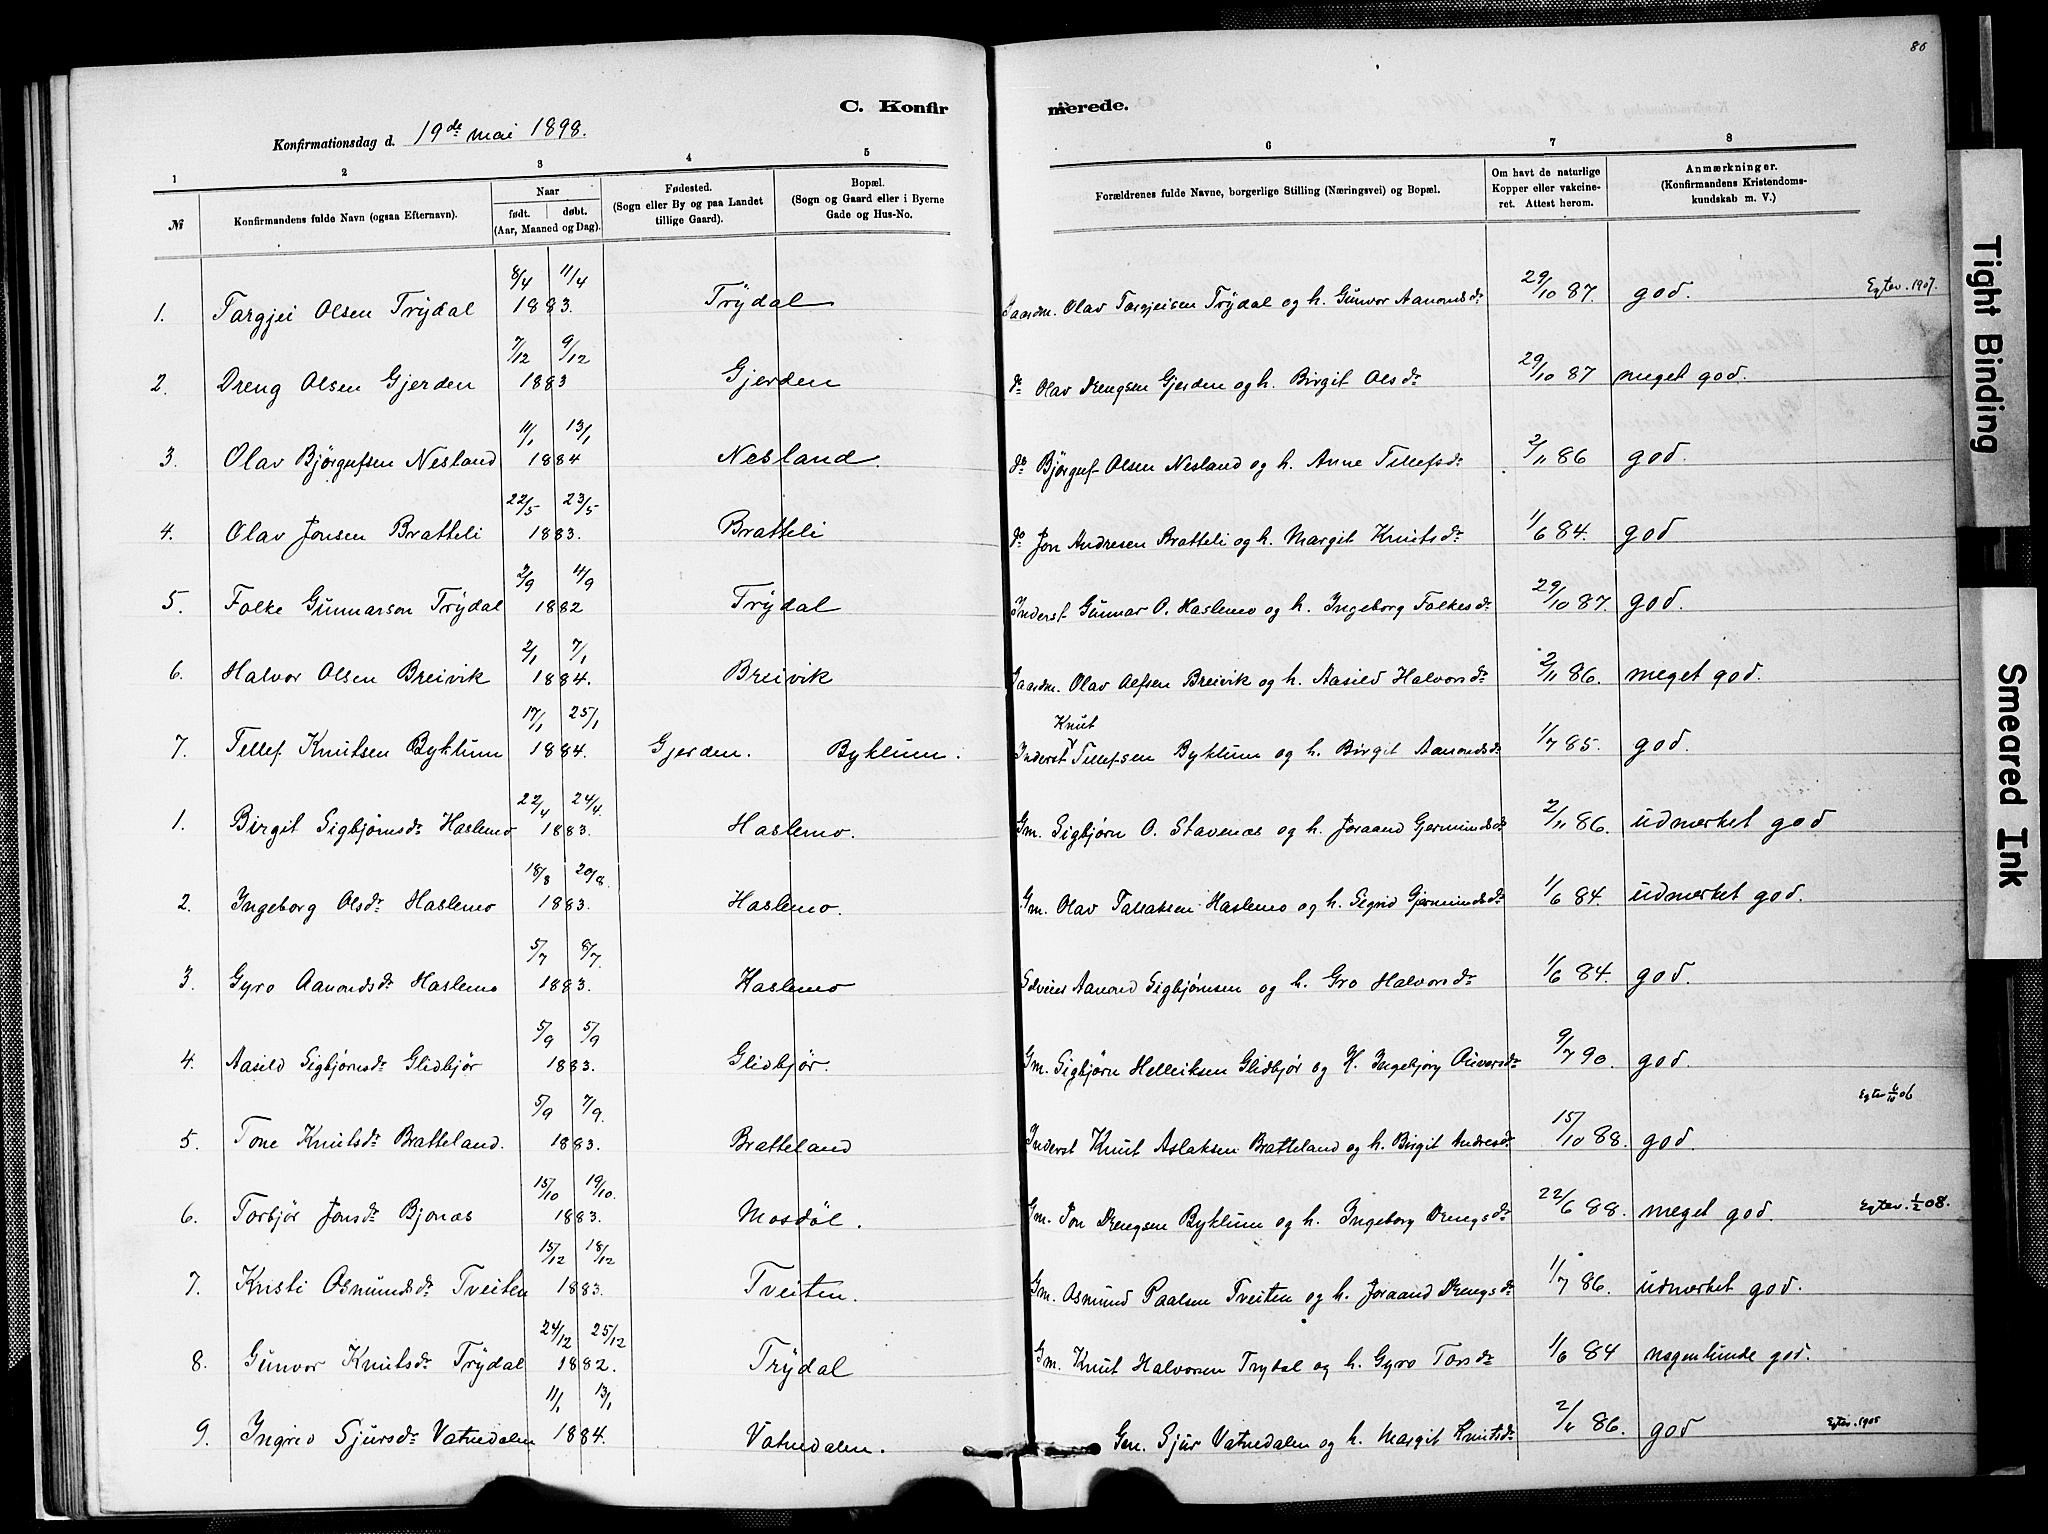 86
C. Konfirmerede.
Konfirmationsdag d. 19de mai 1898.
1 2 3 4 5 6 7 8
№ Konfirmandens fulde Navn (ogsaa Efternavn). Naar født. døbt. (Aar, Maaned og Dag). Fødested. (Sogn eller By og paa Landet tillige Gaard). Bopæl. (Sogn og Gaard eller i Byerne Gade og Hus-No. Forældrenes fulde Navne, borgerlige Stilling (Næringsvei) og Bopæl. Om havt de naturlige Kopper eller vakcineret. Attest herom. Anmærkninger. (Konfirmandens Kristendomskundskab m. V.)
1. Targjei Olsen Trydal 8/4 11/4 1883. Trydal Gaardm. Olav Targjeisen Trydal og h. Gunvor Aanondsdr 29/10 87. god. Egtev. 1907.
2. Dreng Olsen Gjerden 7/12 9/12 1883 Gjerden do Olav Drengsen Gjerden og h. Birgit Olsdr 29/10 87 meget god.
3. Olav Bjørgufsen Nesland 11/1 13/1 1884 Nesland. do Bjørguf Olsen Nesland og h. Anne Tellefsdr 2/11 86 god.
4. Olav Jonsen Bratteli 22/5 23/5 1883. Bratteli do Jon Andresen Bratteli og h. Margit Knutsdr 1/6 84. god
5. Folke Gunnarson Trydal 2/9 11/9 1882 Trydal Inderst Gunnar O. Haslemo og h. Ingeborg Folkesdr 29/10 87 god.
6. Halvor Olsen Breivik 2/1 7/1 1884. Breivik Gaardm. Olav Olfsen Breivik og h. Aasild Halvorsdr 2/11 86. meget god.
7. Tellef Knutsen Byklum 17/1 25/1 1884. Gjerden. Byklum. Inderst Knut Tellefsen Byklum og h. Birgit Aanondsdr 1/7 85. god.
1. Birgit Sigbjørnsdr Haslemo 22/4 24/4 1883. Haslemo. Gm. Sigbjørn O. Stavenæs og h. Joraand Gjermundsdr 2/11 86. udmerket god
2. Ingeborg Olsdr Haslemo 18/8 20/8. 1883. Haslemo. Gm. Olav Tallaksen Haslemo og h. Sigrid Gjermundsdr 1/6 84. udmerket god.
3. Gyro Aanondsdr Haslemo 5/7 8/7. 1883. Haslemo Aanond Sigbjørnsen og h. Gro Halvorsdr 1/6 84. god.
4. Aasild Sigbjørnsdr Glidbjør 5/9 5/9 1883. Glidbjør. Gm. Sigbjørn Helleiksen Glidbjør og H. Ingebjørg Oliversdr 9/7 90. god.
5. Tone Knutsdr Bratteland. 5/9 7/9. 1883. Bratteland Inderst Knut Aslaksen Bratteland og h. Birgit Andresdr 15/10 88. god. Egtev 6/10 06
6. Torbjør Jonsdr Bjonæs 15/10 19/10. 1883. Mosdøl. Gm. Jon Drengsen Byklum og h. Ingeborg Drengsdr 22/6 88. meget god. Egtev. 1/2 08.
7. Kristi Osmundsdr Tveiten 15/12 18/12 1883. Tveiten. Gm. Osmund Paalsen Tveiten og h. Joraand Drengsdr 1/7 86. udmerket god.
8. Gunvor Knutsdr Trydal 24/12 25/12 1882. Trydal Gm. Knut Halvorsen Trydal og h. Gyro Torsdr 1/6 84 nogenlunde god.
9. Ingrid Sjursdr Vatnedalen 11/1 13/1 1884. Vatnedalen. Gm. Sjur Vatnedalen og h. Margit Knutsdr 2/11 86. god Egtev. 1905
Tight Binding
Smeared Ink